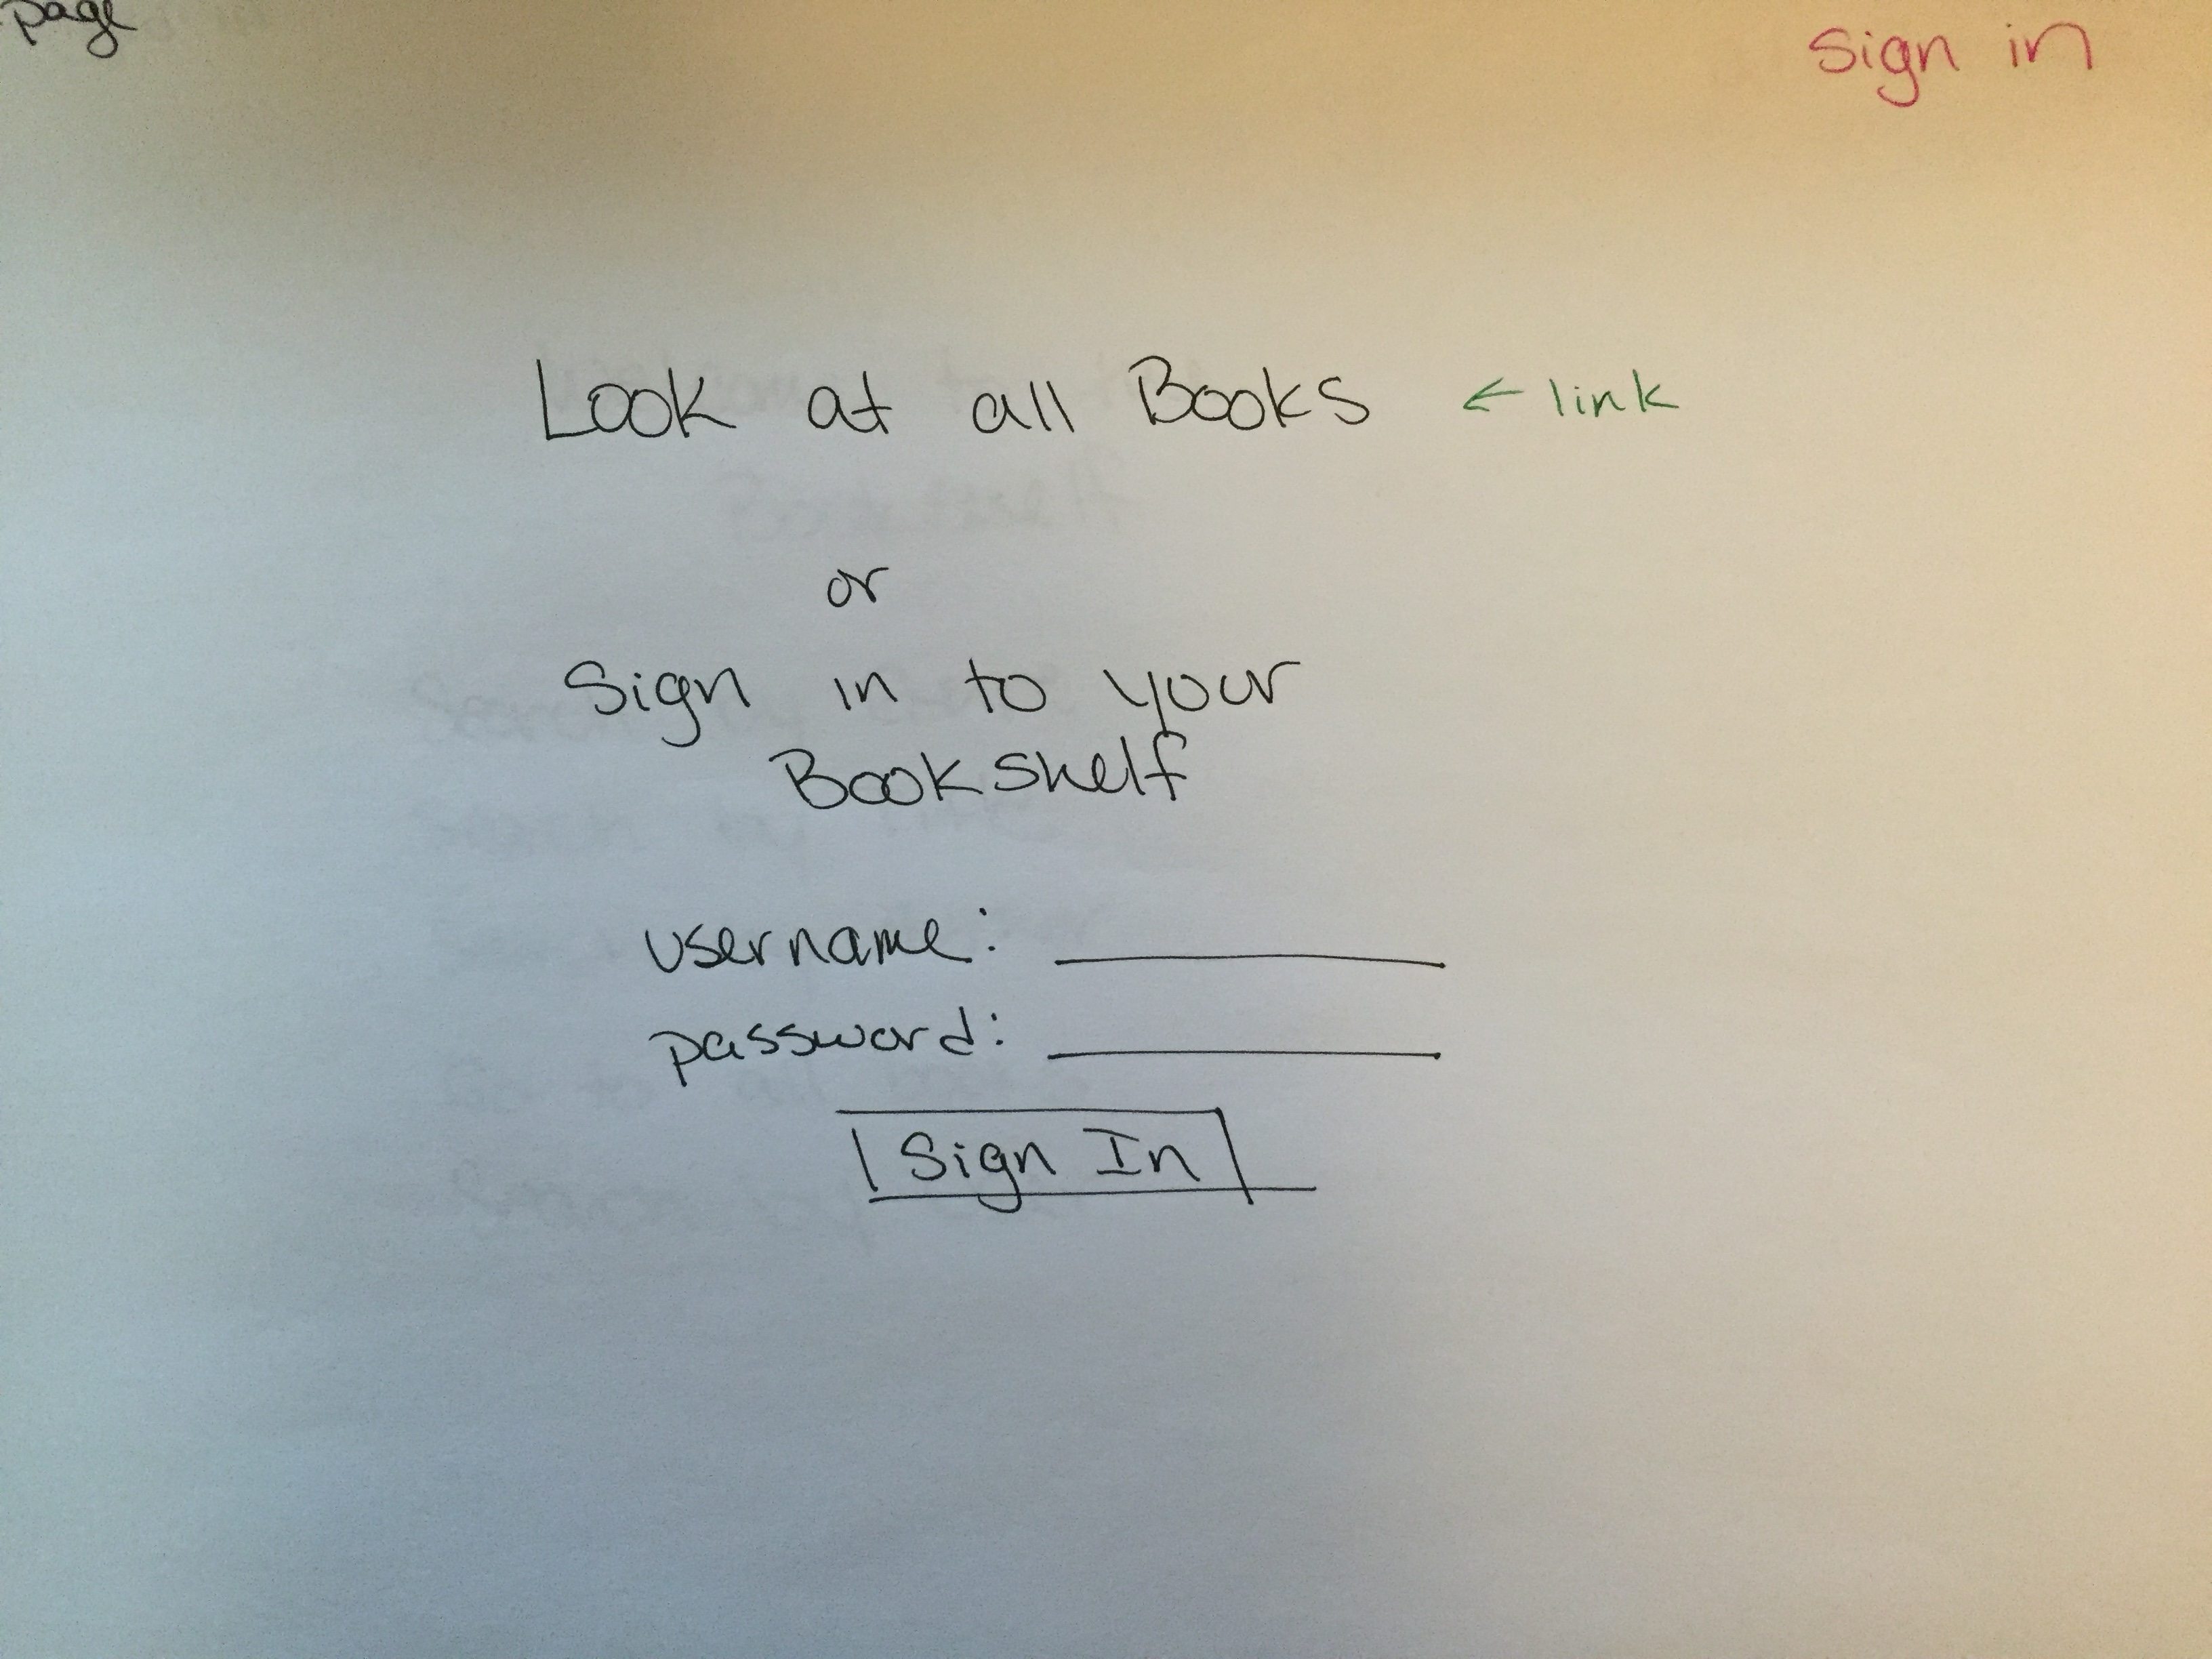 page
Sign in
Look at all Books ← link
or
Sign in to your
Bookshelf
username:
password:
Sign In